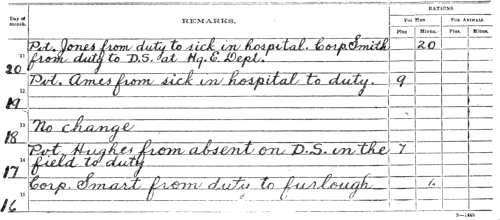 Day of month.
REMARKS.
RATIONS
FOR MEN
FOR ANIMALS.
Plus
Minus.
Plus.
Minus.
Pvt. Jones from duty to sick in hospital. Corp. Smith 20
11
from duty to D.S. at Hq. E. Dept.
20
Pvt. Ames from sick in hospital to duty. 9
12
19
13
No change
18
Pvt. Hughes from absent on D.S. in the 7
field to duty
17
Corp. Smart from duty to furlough
16
3—1469